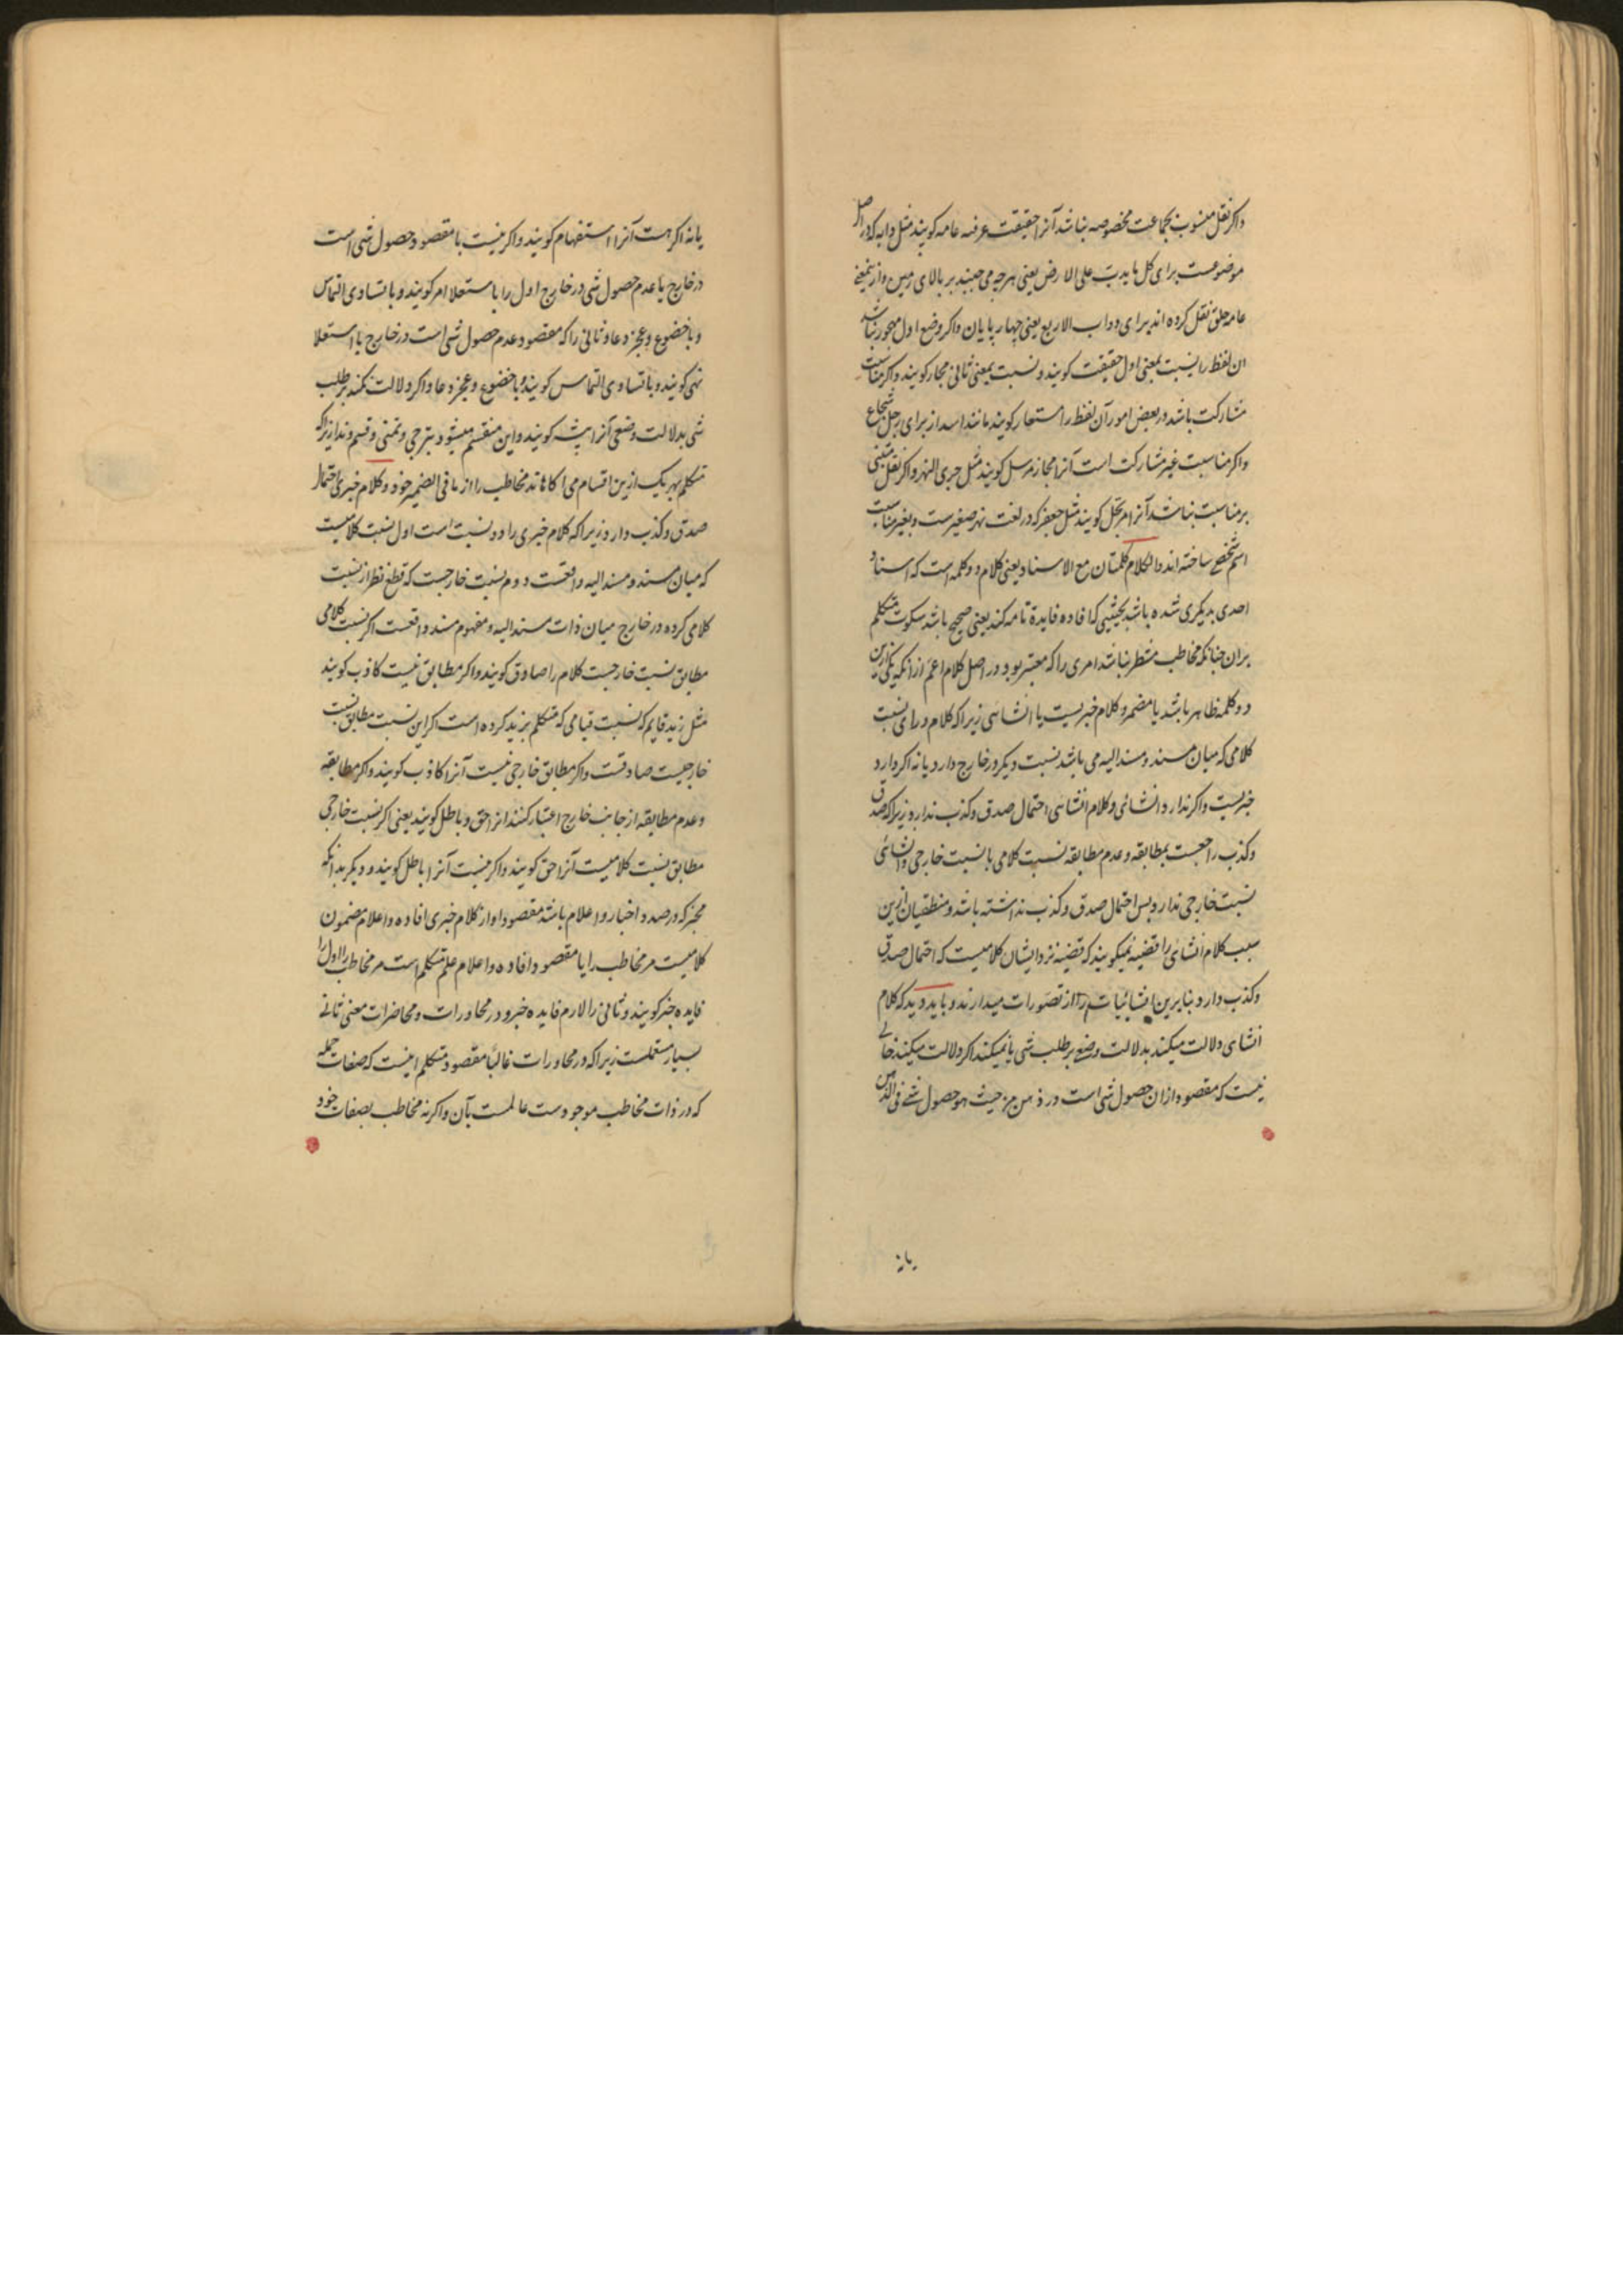 واکر نقل منسوب بجماعت مخصوصه نباشد آنرا حقیقت عرفیه عامه کویند مثل دابه که در اصل
موضوعست برای کل ما یدبّ علی الارض یعنی هرچه می جنبد بر بالای زمین و از ینمعنی
عامه خلق نقل کرده اند برای دواب الاربع یعنی چهار پایان واکر وضع اول مهجور نباشد
ان لفظ را نسبت بمعنی اول حقیقت کویند و نسبت بمعنی ثانی مجاز کویند واکر مناسبت
مشارکت باشد در بعض امور آن لفظ را استعاره کویند مانند اسد از برای رجل شجاع
واکر مناسبت غیر مشارکت است آنرا مجاز مرسل کویند مثل جری النهر واکر نقل مبتنی
بر مناسبت نباشد آنرا مرتجل کویند مثل جعفر که در لغت نهر صغیرست و بغیر مناسبت
اسم شخصی ساخته اند والکلام کلمتان مع الاسناد یعنی کلام دو کلمه است که اسناد
احدی بدیکری شده باشد بحیثیتی که افاده فایدة تامه کند یعنی صحیح باشد سکوت متکلم
بران چنانکه مخاطب منتظر نباشد امری را که معتبر بود در اصل کلام اعم از انکه یکی ازین
دو کلمه ظاهر باشد یا مضمر و کلام خبریست یا انشایی زیرا که کلام ورای نسبت
کلامی که میان مسند و مسند الیه می باشد نسبت دیکر در خارج دارد یا نه اکر دارد
خبریست واکر ندارد انشائی و کلام انشایی احتمال صدق و کذب ندارد زیرا که صدق
و کذب راجعست بمطابقه و عدم مطابقه نسبت کلامی با نسبت خارجی و انشائی
نسبت خارجی ندارد پس احتمال صدق و کذب نداشته باشد و منطقیان ازین
سبب کلام انشائی را قضیه نمیکویند که قضیه نزد ایشان کلامیست که احتمال صدق
و کذب دارد بنابرین انشائیات را از تصورات میدارند و باید دید که کلام
انشای دلالت میکند بدلالت وضعی بر طلب شی یا نمیکند اکر دلالت میکند خالی
نیست که مقصود ازان حصول شی است در ذهن من حیث هو حصول شی فی الذهن
یا نه
یا نه اکر هست آنرا استفهام کویند واکر نیست یا مقصود حصول شی است
در خارج یا عدم حصول شی در خارج اول را با ستعلا امر کویند و با تساوی التماس
و با خضوع و عجز دعا و ثانی را که مقصود عدم حصول شی است در خارج با استعلا
نهی کویند و با تساوی التماس کویند و با خضوع و عجز دعا واکر دلالت نکند بر طلب
شی بدلالت وضعی آنرا تنبیه کویند و این منقسم میشود بترجی و تمنی و قسم و ندا زیرا که
متکلم بهر یک ازین اقسام می اکاهاند مخاطب را از ما فی الضمیر خود و کلام خبری احتمال
صدق و کذب دارد زیرا که کلام خبری را دو نسبت است اول نسبت کلامیست
که میان مسند و مسند الیه واقعست دوم نسبت خارجیست که قطع نظر از نسبت
کلامی کرده در خارج میان ذات مسند الیه و مفهوم مسند واقعست اکر نسبت کلامی
مطابق نسبت خارجیست کلام را صادق کویند واکر مطابق نیست کاذب کویند
مثل زید قایم که نسبت قیامی که متکلم بزید کرده است اکر این نسبت مطابق نسبت
خارجیست صادقست واکر مطابق خارجی نیست آنرا کاذب کویند واکر مطابقه
و عدم مطابقه از جانب خارج اعتبار کنند انرا حق و باطل کویند یعنی اکر نسبت خارجی
مطابق نسبت کلامیست آنرا حق کویند واکر نیست آنرا باطل کویند و دیکر بدانکه
مخبر که در صدد اخبار و اعلام باشد مقصود او از کلام خبری افاده و اعلام مضمون
کلامیست مر مخاطب را یا مقصود افاده و اعلام علم متکلم است مر مخاطب را اول را
فایده خبر کویند و ثانی را لازم فایده خبر و در محاورات و محاضرات معنی ثانی
بسیار مستعملست زیرا که در محاورات غالباً مقصود متکلم اینست که صفات جمله
که در ذات مخاطب موجودست عالمست بآن واکر نه مخاطب بصفات خود